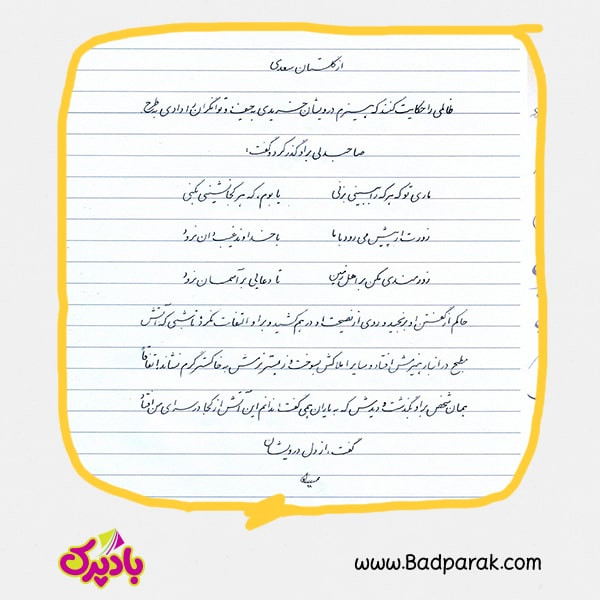 از گلستان سعدی
ظالمی را حکایت کنند که هیزم درویشان خریدی به حیف و توانگران را دادی به طرح
صاحبدلی بر او گذر کرد و گفت:
ماری تو که هر که را ببینی بزنی یا بوم، که هر کجا نشینی بکنی
زورت ار پیش می رود با ما با خداوند غیب دان نرود
زورمندی مکن بر اهل زمین تا دعایی بر آسمان نرود
حاکم از گفتن او برنجید و روی از نصیحت او در هم کشید و بر او التفات نکرد تا شبی که آتش
مطبخ در انبار هیزمش افتاد و سایر املاکش بسوخت وز بستر نرمش به خاکستر گرم نشاند اتفاقاً
همان شخص بر او بگذشت و دیدش که به یاران همی گفت ندانم این آتش از کجا در سرای من افتاد
گفت: از دل درویشان
بادپرک
www.Badparak.com